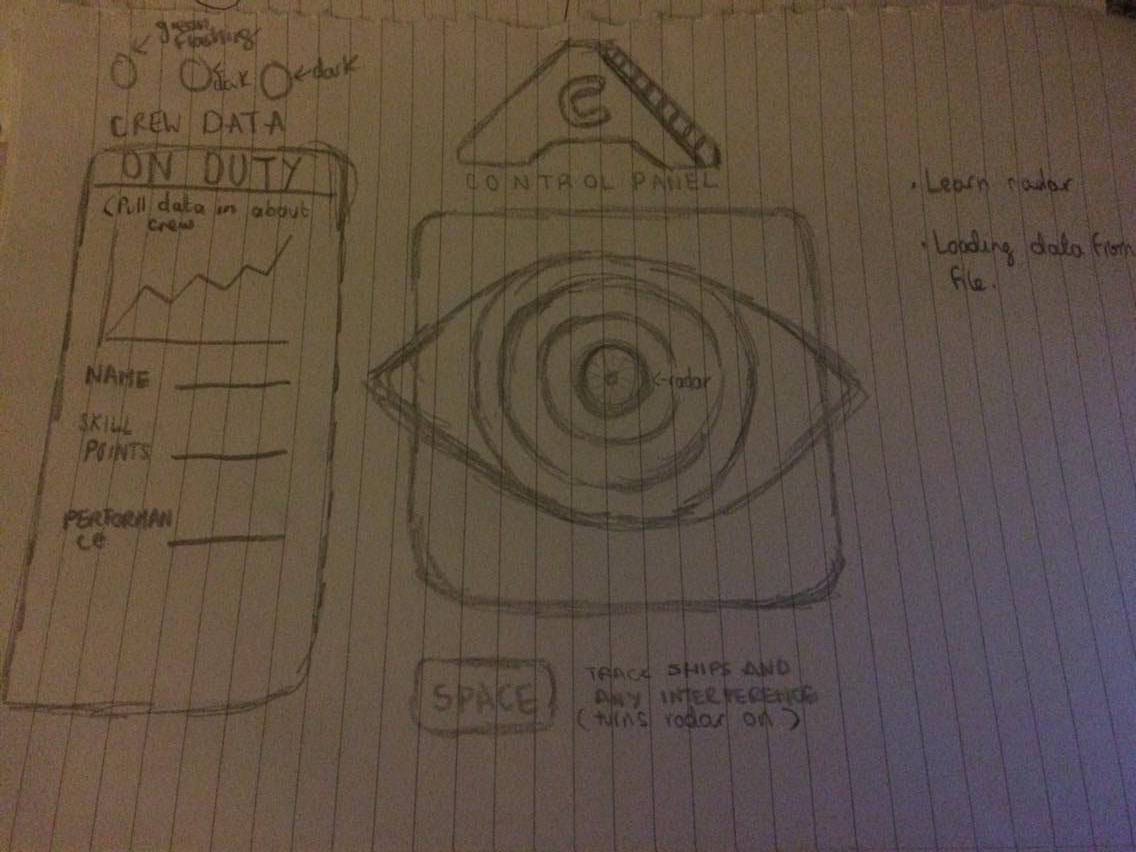 green
flashing
dak
dark
CREW DATA
ON DUTY
(Pull data in about
crew
NAME
SKILL
POINTS
PERFORMAN
CE
C
CONTROL PANEL
radar
SPACE
TRACK SHIPS AND
ANY INTERFERENCE
(turns radar on)
• Learn radar
• Loading data from
file.